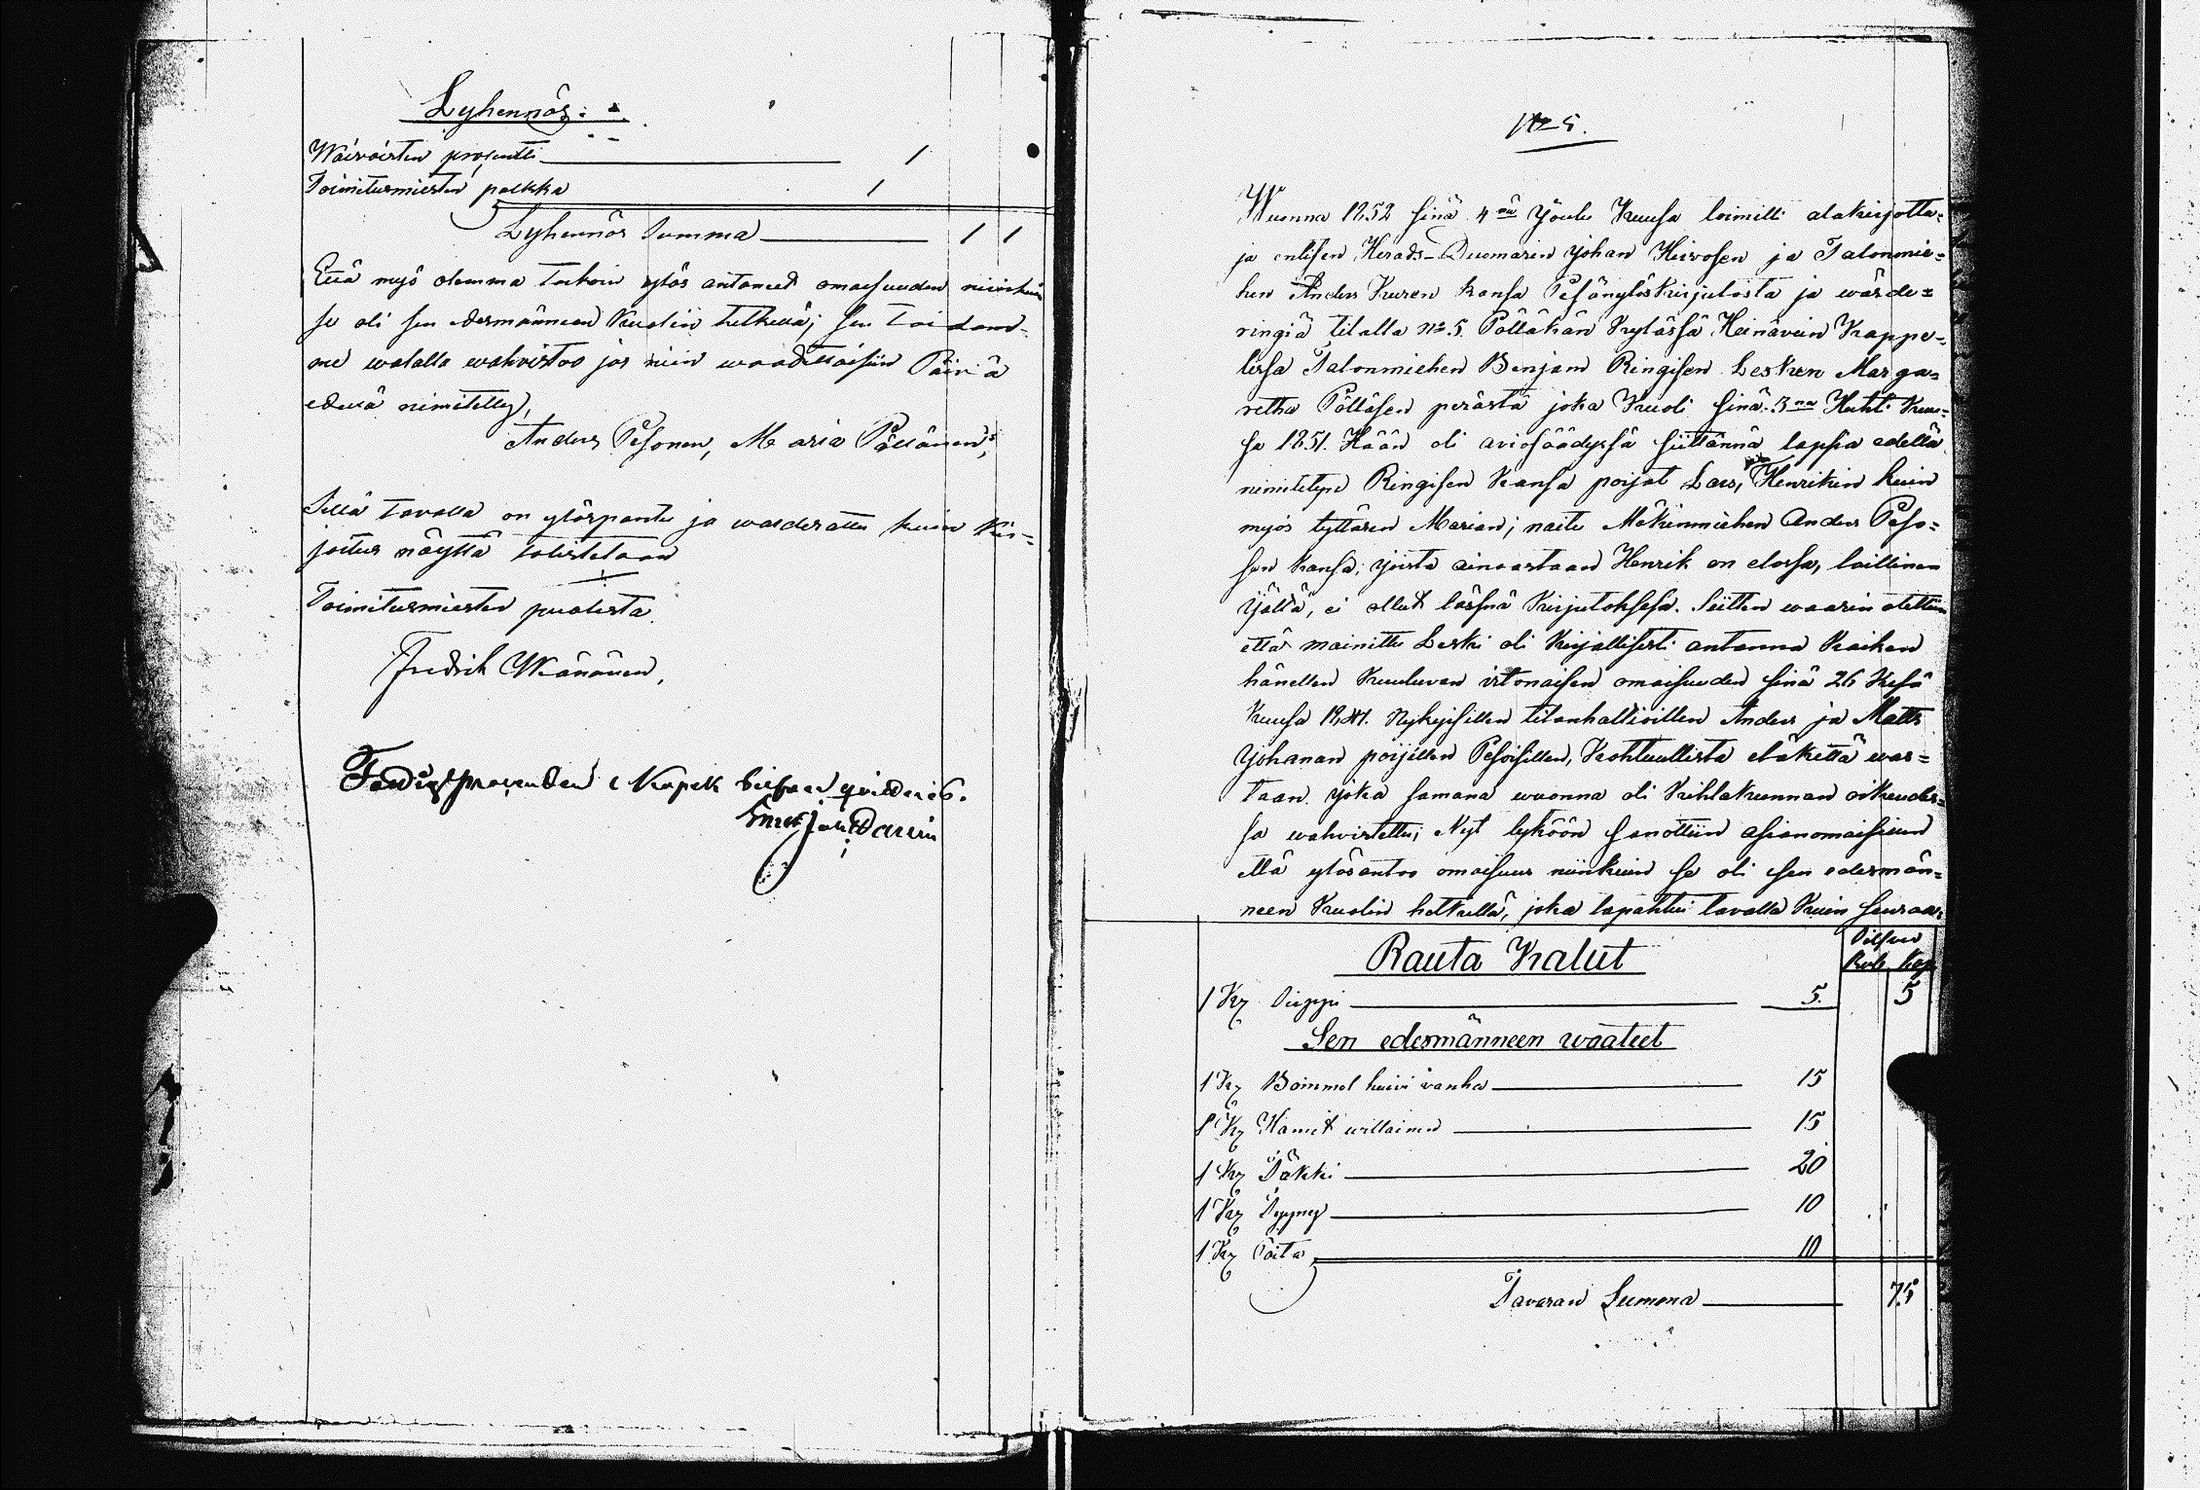 Lyhennös:
Waivaisten prosentti 1
Toimitusmiesten palkka 1
Lyhennös Summa 1 1
Että myö olemma tarkoin ylös antaneet omaisuuden niinkuin
se oli sen edesmänneen Kuolin hetkellä; sen toi
me walalla wahvistaa jos niin waadittaisiin Päivä
edellä nimitetty,
Anders Pesonen, Maria Pöllänen;
Sillä tavalla on ylöspantu ja warderattu kuin Kir=
joitus näyttä todistetaan
Toimitusmiesten puolesta
Fredrik Wänänen,
Fattigprocenten 1 Kopek silfver qvitteras.
No 5.
Wuonna 1852 sinä 4nä Joulu Kuusa toimitti alakirjotta=
ja entisen Herads-Duomarin Johan Hirvosen ja Talonmie=
hen Anders Kuren kansa Pesänylöskirjutosta ja wärde=
ringiä tilalla No 5 Pölläkän Kylässä Heinävein Kappe=
lissa Talonmiehen Benjam Ringisen Lesken Marga=
retha Pölläsen perästä joka Kuoli sinä 3na Huhti Kuu=
sa 1851. Hään oli aviosäädyssä siittännä lapsia edellä
nimitetyn Ringisen Kansa poijat Lars, Henrikin kuin
myös tyttären Marian; naitu Mökinmiehen Anders Peso=
sen kansa; joista ainoastaan Henrik on elossa, laillinen
ijältä, ei ollut läsnä Kirjutoksesa. Siitten waarin otettiin
että mainittu Leski oli Kirjallisesti antanna Kaiken
hänellen Kuuluvan irtonaisen omaisuuden sinä 26 Kesä
Kuusa Nykyisillen tilanhaltioillen Anders ja Matts
Johanan poijillen Pesoisillen, Kohtuullista eläkettä was=
taan joka samana wuonna oli Kihlakunnan oikeudes=
sa wahvistettu; Nyt lyköön sanottiin asianomaisiin
että ylösantaa omaisuus niinkuin se oli sen edesmän=
neen Kuolin hetkellä, joka tapahtui tavalla Kuin seuraa:
Silfver
Rub Kop
Rauta Kalut
1 Kz Sirppi 5. 5
Sen edesmänneen waateet
1 Kz Bommol huivi vanha 15
1 Kz Hamet willainen 15
1 Kz Täkki 20
1 Kz Tyyny 10
1 Kz Paita 10
Tavaran Summa 75